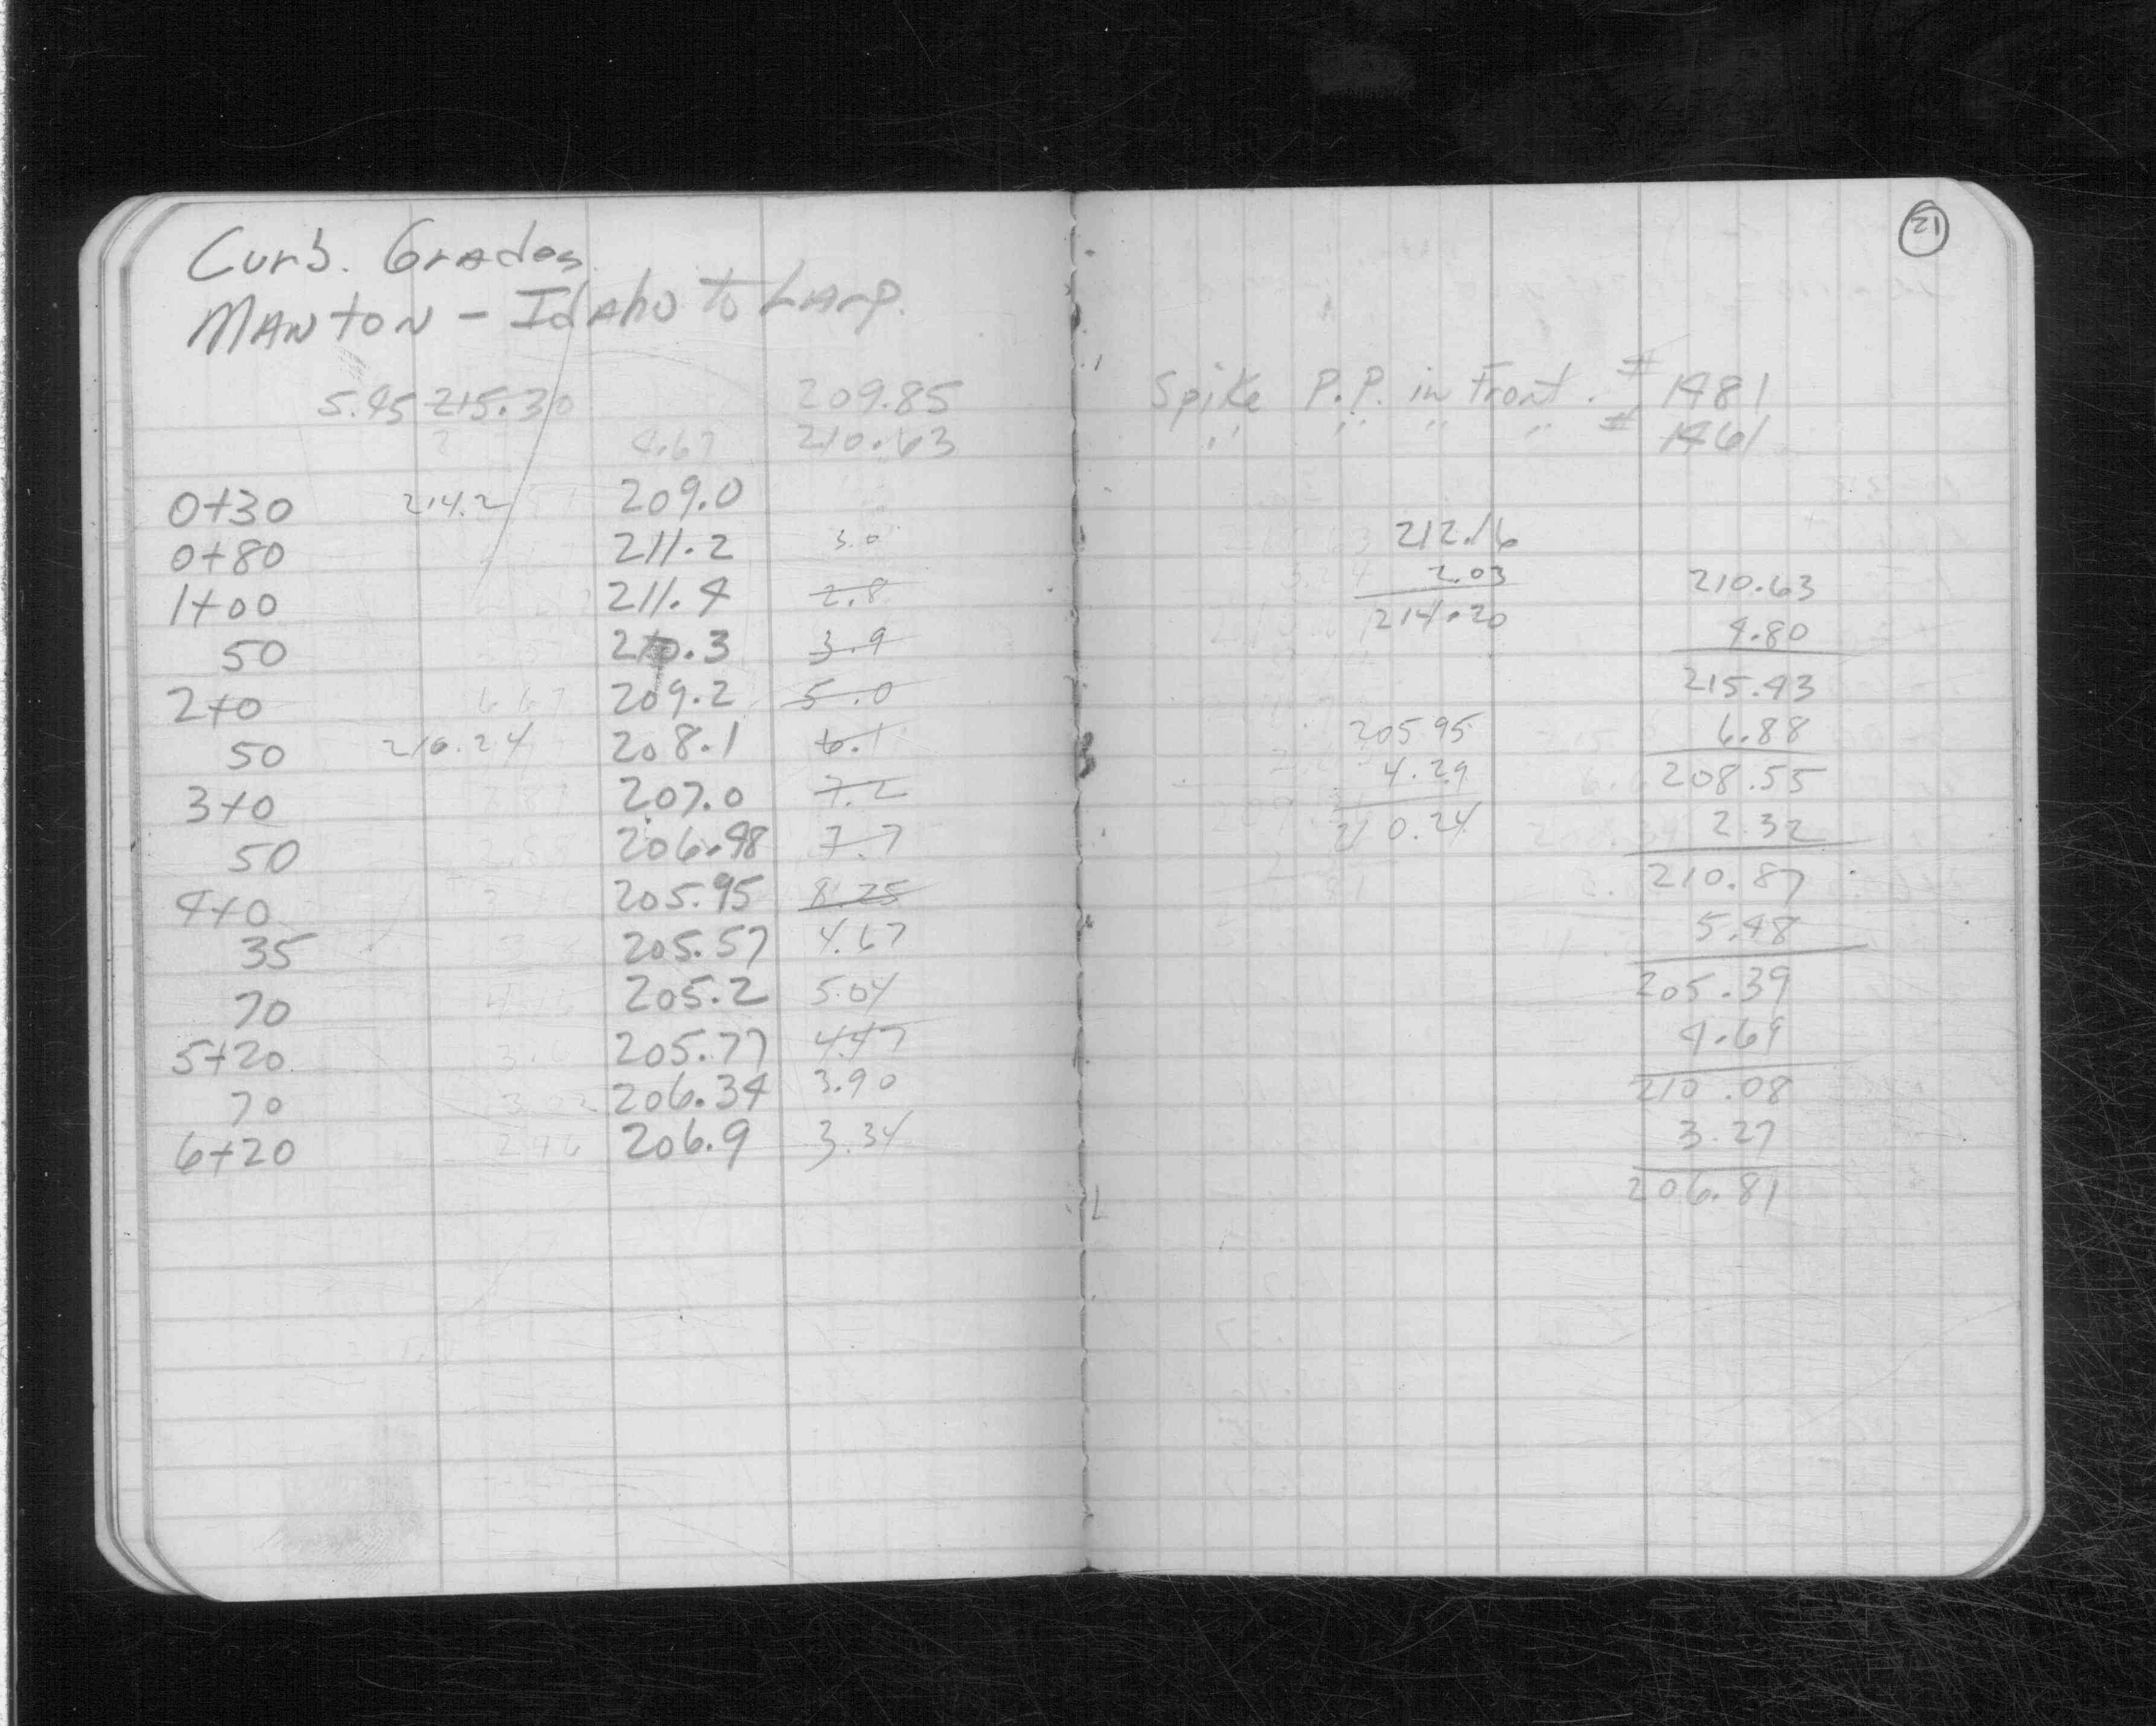 Curb. Grades
MANTON - Idaho to LARP.
5.45 215.30 209.85
4.67 210.63
0+30 214.2 209.0
0+80 211.2 3.0
1+00 211.4 2.8
50 210.3 3.9
2+0 6.67 209.2 5.0
50 210.24 208.1 6.1
3+0 7.87 207.0 7.2
50 2.55 206.48 7.7
4+0 205.95 8.25
35 205.57 4.67
70 205.2 5.04
5+20 205.77 4.47
70 3.02 206.34 3.90
6+20 2.46 206.9 3.34
21
Spike P.P. in Front. # 1481
" " " " # 1461
212.16
2.03
214.20
205 95
4.29
210.24
210.63
4.80
215.43
6.88
208.55
2.32
210.87
5.48
205.39
4.69
210.08
3.27
206.81